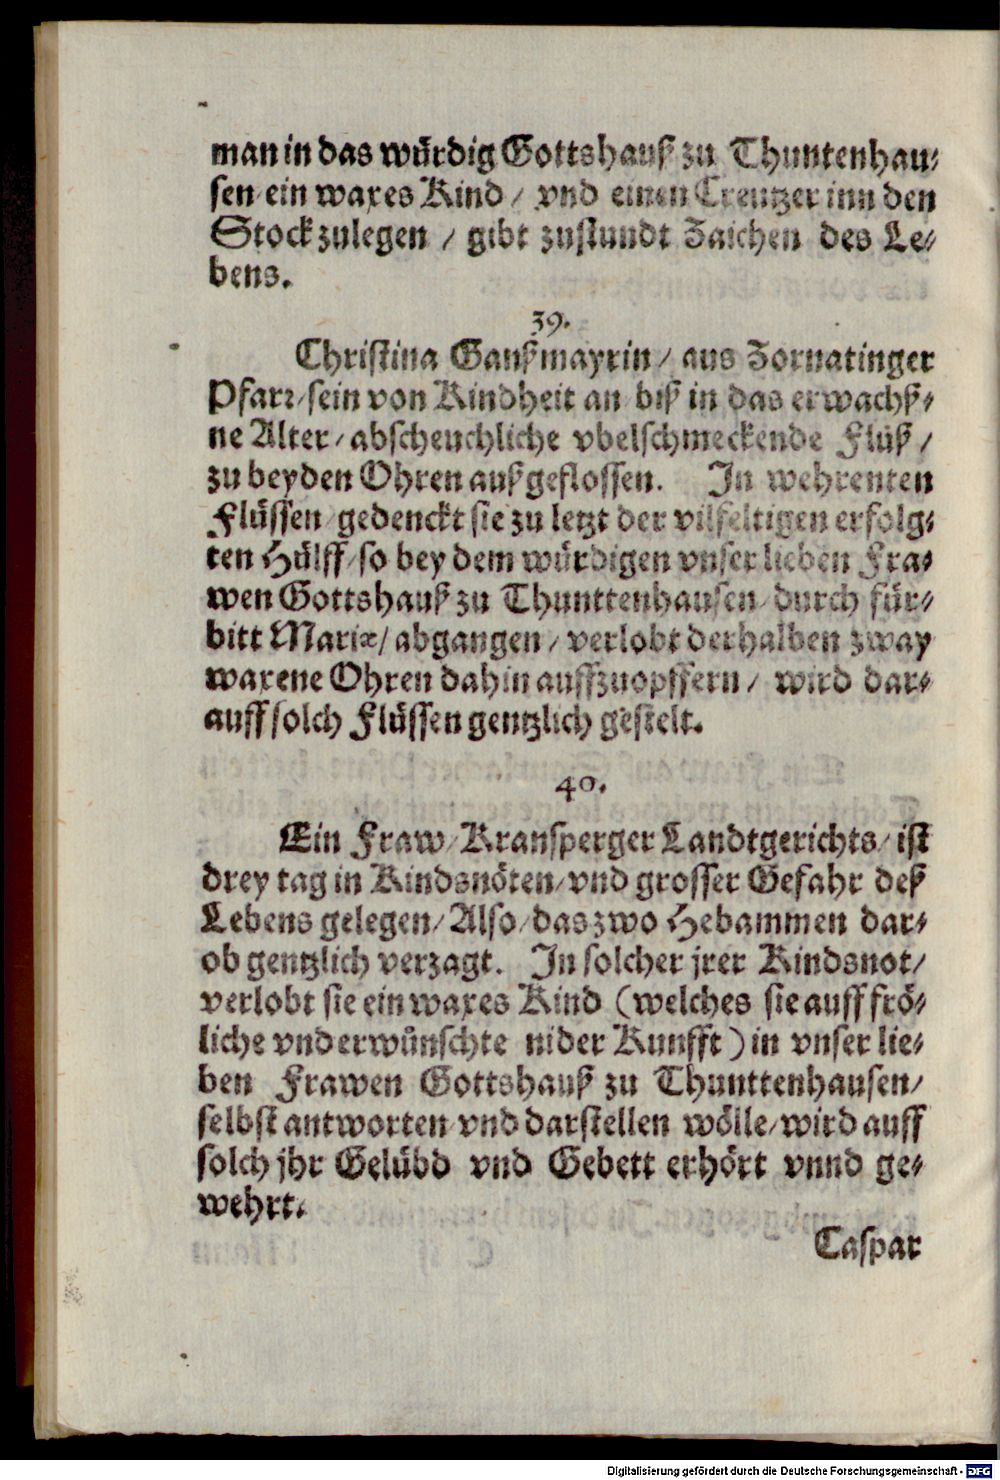 man in das würdig Gottshauß zu Thuntenhau-
sen ein waxes Kind / vnd einen Creutzer inn den
Stock zulegen / gibt zustundt Zaichen des Le-
bens.
39.
Christina Gaußmayrin / aus Zornatinger
Pfarr / sein von Kindheit an biß in das erwachß-
ne Alter / abscheuchliche vbelschmeckende Flüß /
zu beyden Ohren außgeflossen. In wehrenten
Flüssen gedenckt sie zu letzt der vilfeltigen erfolg-
ten Hülff / so bey dem würdigen vnser lieben Fra-
wen Gottshauß zu Thunttenhausen durch für-
bitt Mariæ / abgangen / verlobt derhalben zway
waxene Ohren dahin auffzuopffern / wird dar-
auff solch Flüssen gentzlich gestelt.
40.
Ein Fraw / Kransperger Landtgerichts / ist
drey tag in Kindsnöten / vnd grosser Gefahr deß
Lebens gelegen / Also / das zwo Hebammen dar-
ob gentzlich verzagt. In solcher jrer Kindsnot /
verlobt sie ein waxes Kind (welches sie auff frö-
liche vnd erwünschte nider Kunfft) in vnser lie-
ben Frawen Gottshauß zu Thunttenhausen /
selbst antworten vnd darstellen wölle / wird auff
solch jhr Gelübd vnd Gebett erhört vnnd ge-
wehrt.
Caspar
Digitalisierung gefördert durch die Deutsche Forschungsgemeinschaft - DFG